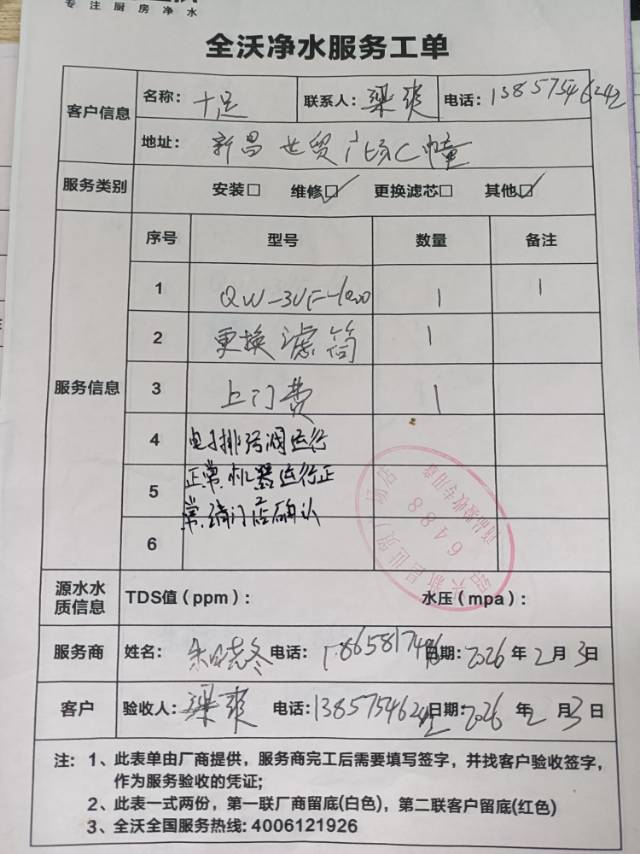 专注厨房净水
全沃净水服务工单
客户信息 名称: 十足 联系人: 梁爽 电话: 13857546242
地址: 新昌世贸广场C幢
服务类别 安装□ 维修☑ 更换滤芯□ 其他☑
服务信息 序号 型号 数量 备注
1 QW-3UF-1000 1 1
2 更换滤筒 1
3 上门费 1
4 电子排污阀运行
5 正常.机器运行正
常.请门店确认
6
6488
商品验收专用章
源水水质信息 TDS值(ppm): 水压(mpa):
服务商 姓名: 电话: 日期: 2026年2月3日
客户 验收人: 梁爽 电话: 13857546242 日期: 2026年2月3日
注: 1、此表单由厂商提供，服务商完工后需要填写签字，并找客户验收签字，
作为服务验收的凭证;
2、此表一式两份，第一联厂商留底(白色)，第二联客户留底(红色)
3、全沃全国服务热线: 4006121926